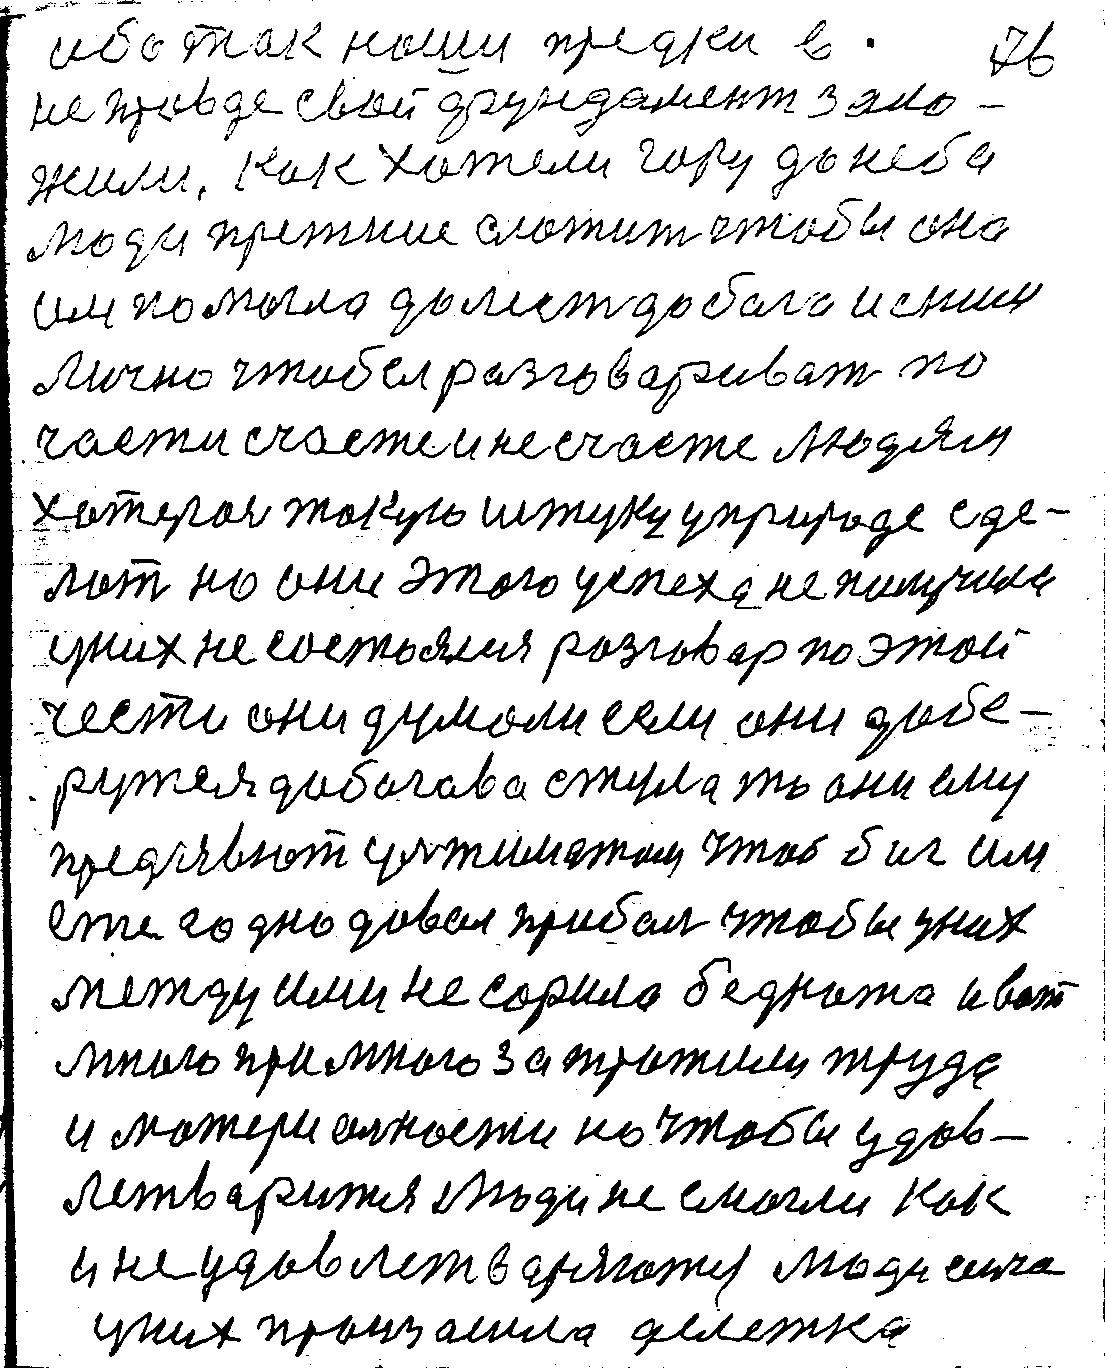 ибо так наши предки в 76
не правде свой фундамент зало-
жили. Как хотели гору до неба
люди прежние сложит чтобы она
им помогла долест до бога и сним
лично чтобы разговариват по
части счасте и несчасте людям
хотелоя такую штуку уприроде сде-
лат но они этого успеха не получили
уних не состоялся разговар по этой
чести они думали если они добе-
рутся до богова стула то они ему
предявют ультиматом чтоб бог им
еже годно довал прибал чтобы уних
между ими не сорила беднота и вот
много примного затротили труда
и материалности но чтобы удов-
летварится люди не смогли как
и не удовлетваряютя люди сича
уних произошла делетка